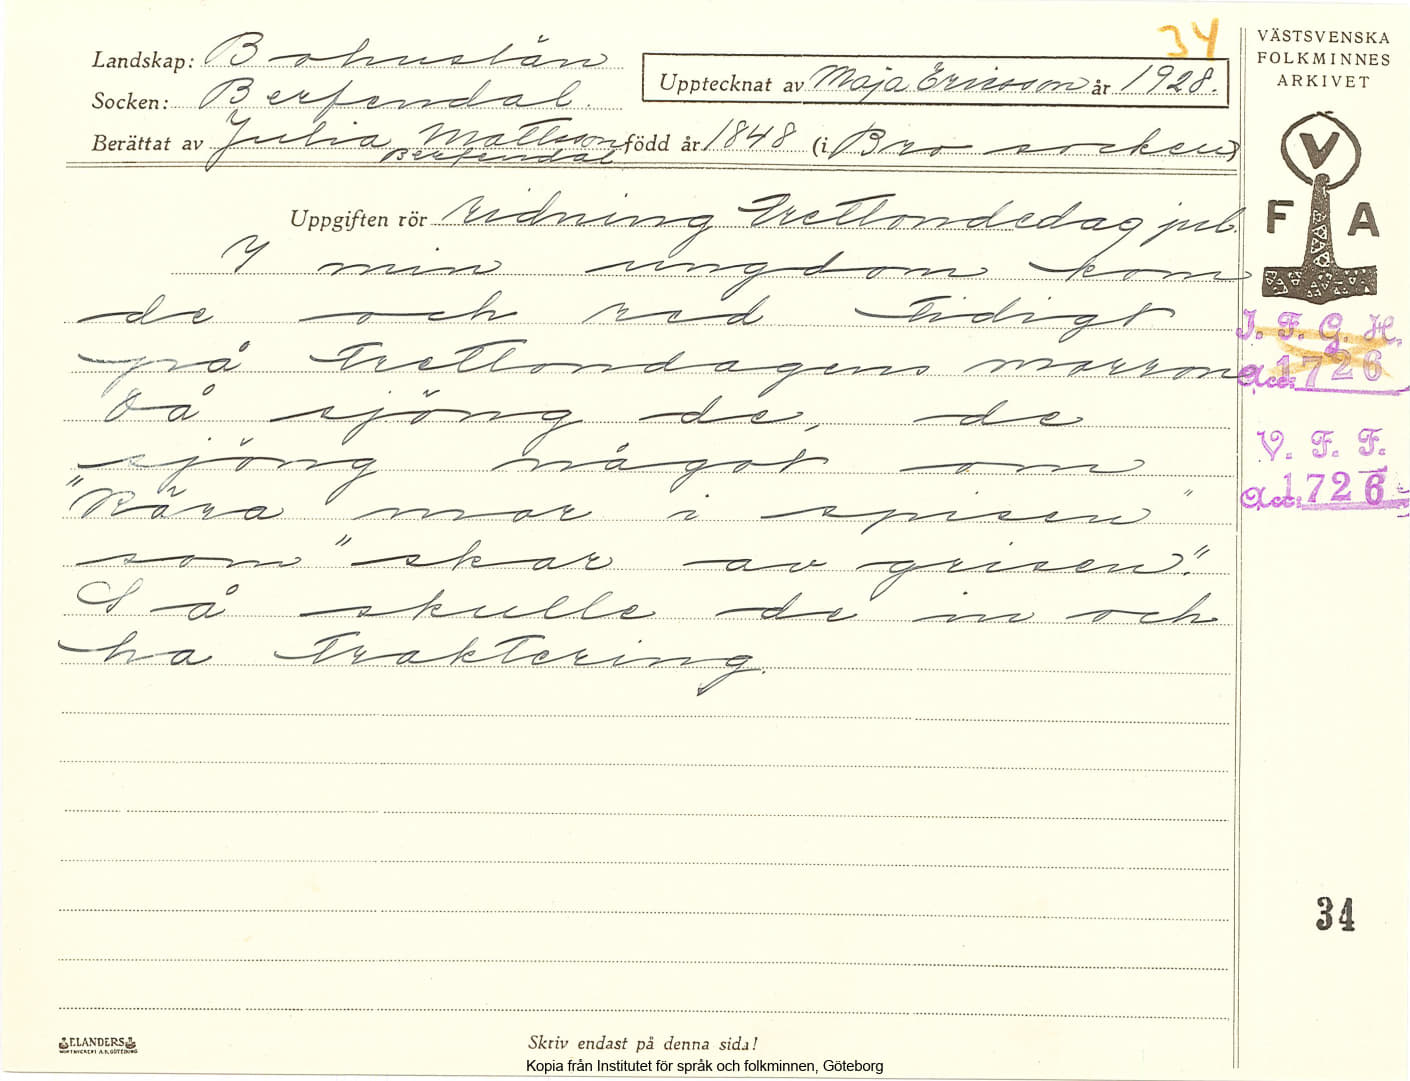 34
VÄSTSVENSKA
FOLKMINNES
ARKIVET
Landskap: Bohuslän
Upptecknat av Maja Ericsson år 1928.
Socken: Berfendal.
Berättat av Julia Mattsson född år 1848 (i Bro socken)
Berfendal
V
F A
Uppgiften rör ridning Trettondedag jul.
I min ungdom kom
de och red tidigt
på Trettondagens morron
Då sjöng de, de
sjöng något om
"Kära mor i spisen"
som "skar av grisen".
Så skulle de in och
ha traktering.
I. F. G. H.
Acc. 1726
V. F. F.
Acc. 1726
34
ELANDERS
GÖTEBORG
Skriv endast på denna sida!
Kopia från Institutet för språk och folkminnen, Göteborg